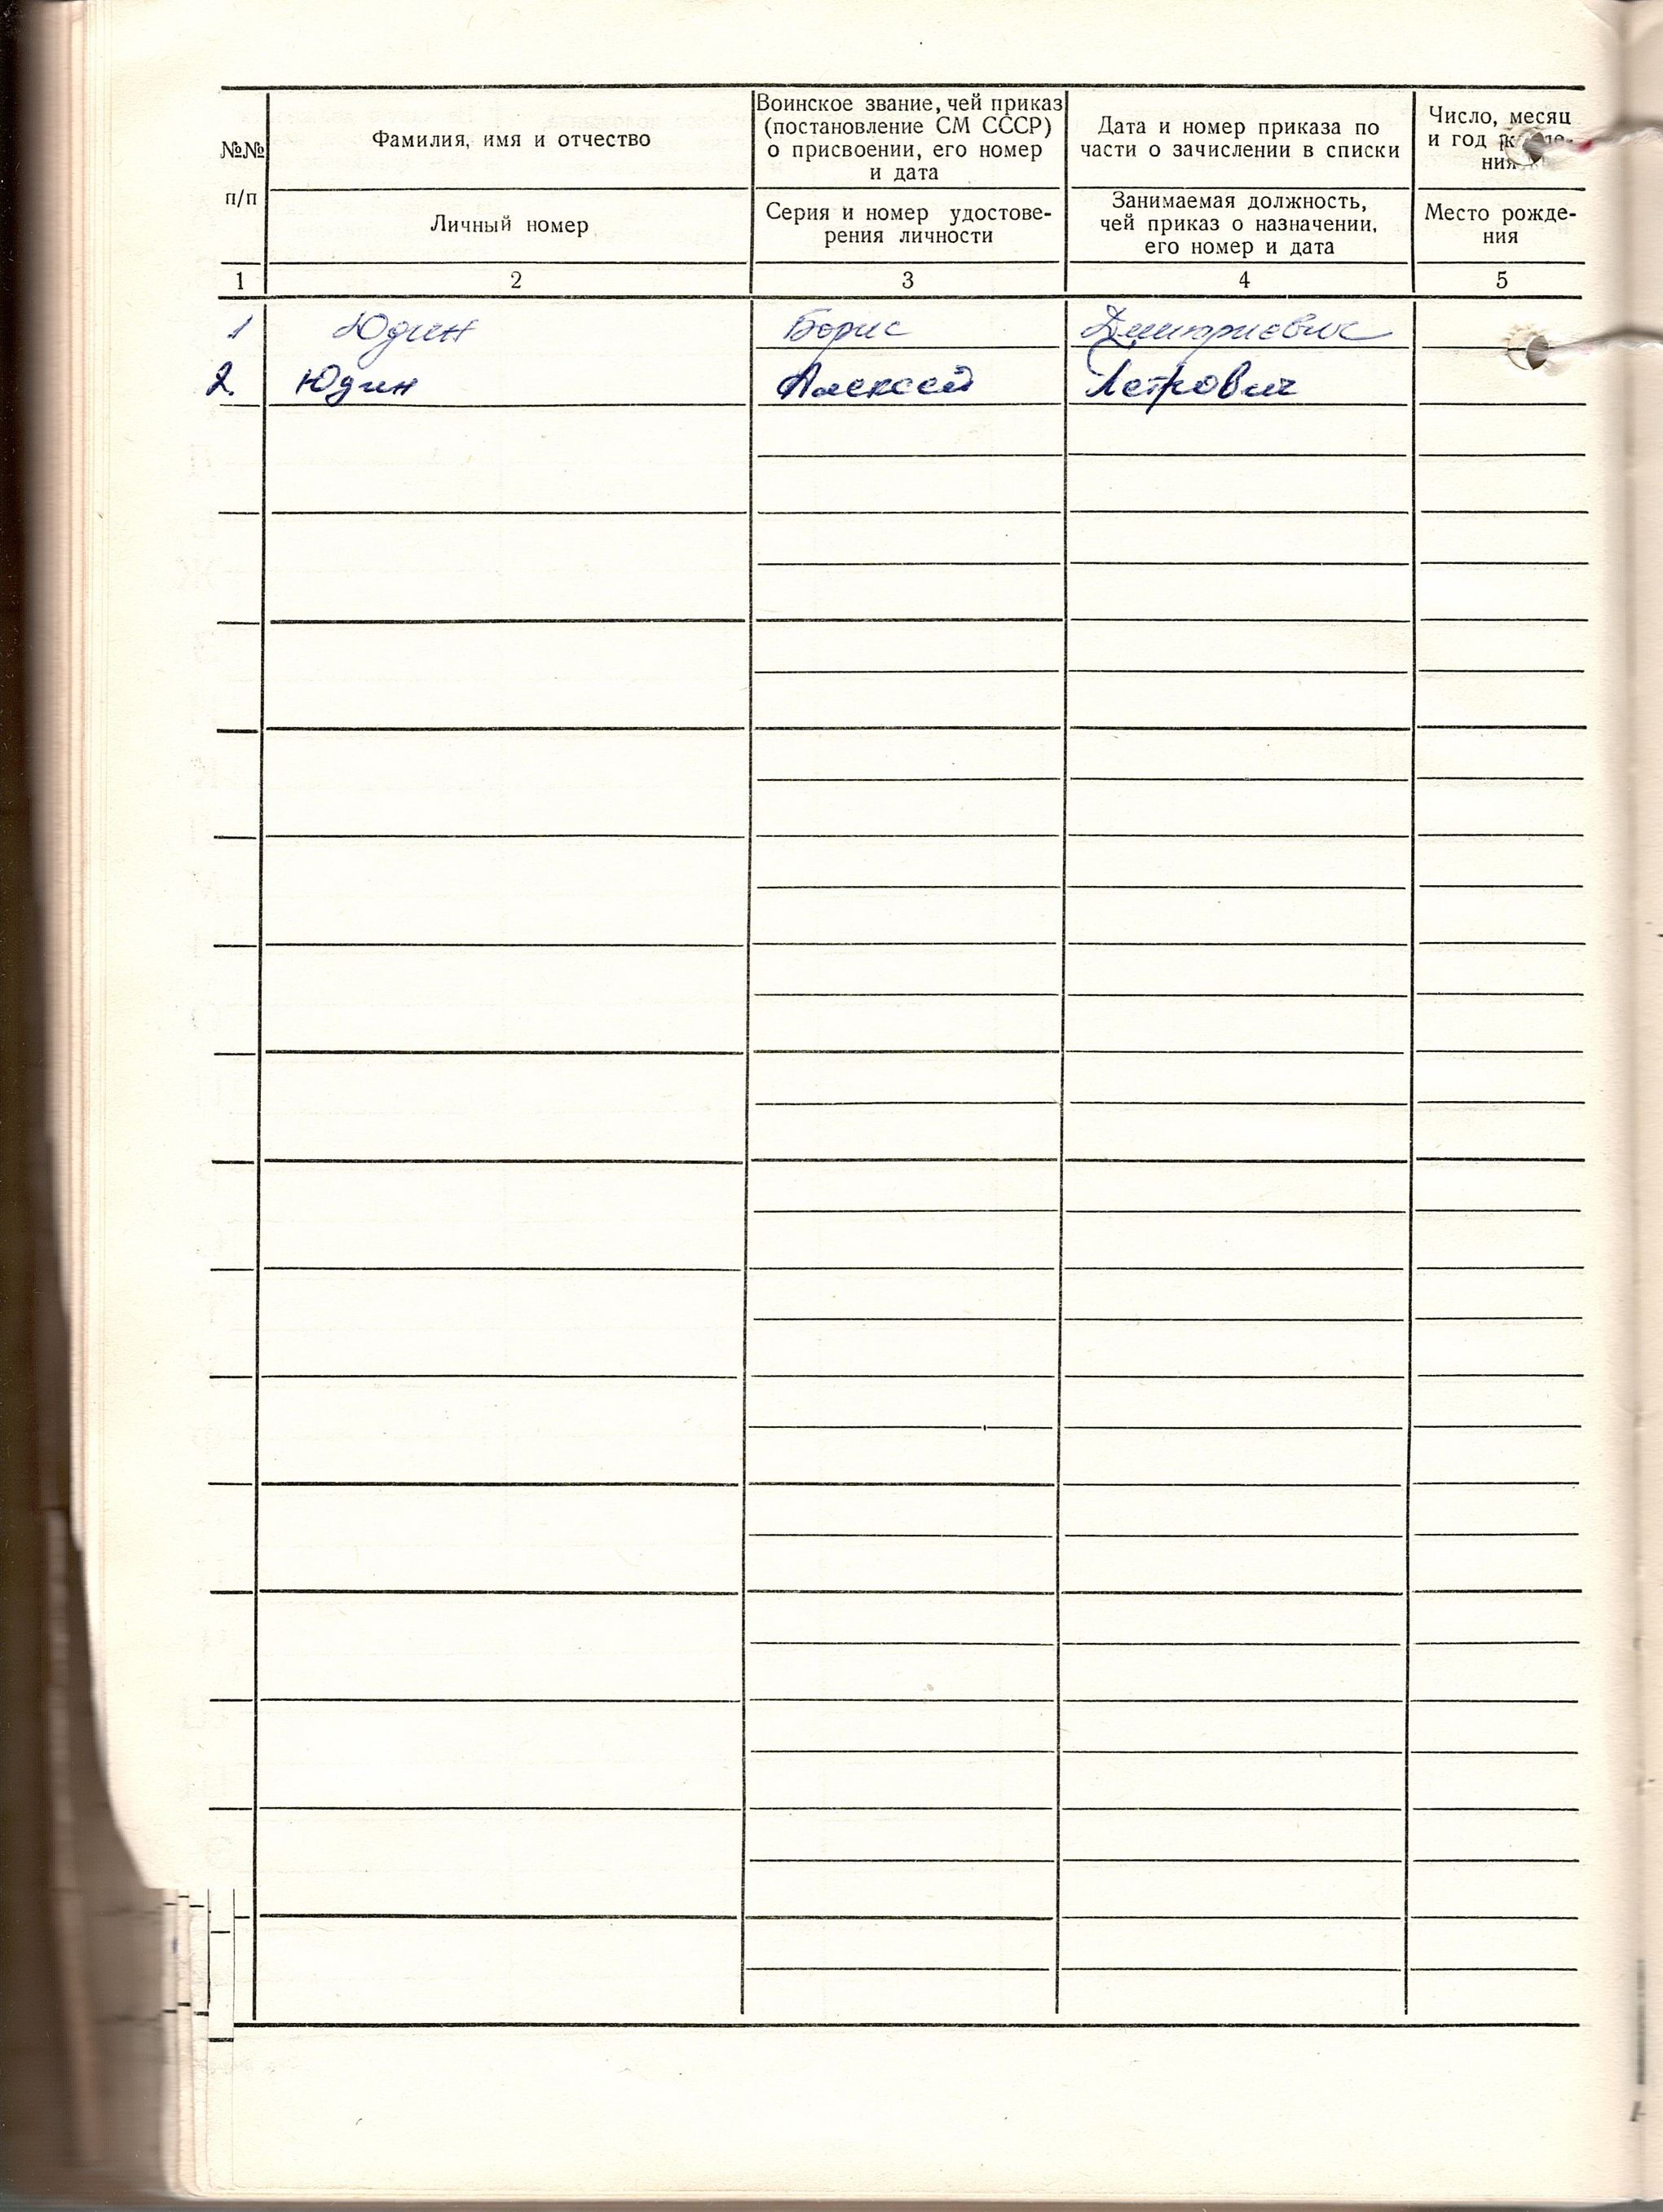 №№
п/п
Фамилия, имя и отчество
Личный номер
Воинское звание, чей приказ
(постановление СМ СССР)
о присвоении, его номер
и дата
Серия и номер удостове-
рения личности
Дата и номер приказа по
части о зачислении в списки
Занимаемая должность,
чей приказ о назначении,
его номер и дата
Число, месяц
и год
ния
Место рожде-
ния
1 2 3 4 5
1 Юдин Борис Дмитриевич
2. Юдин Алексей Петрович